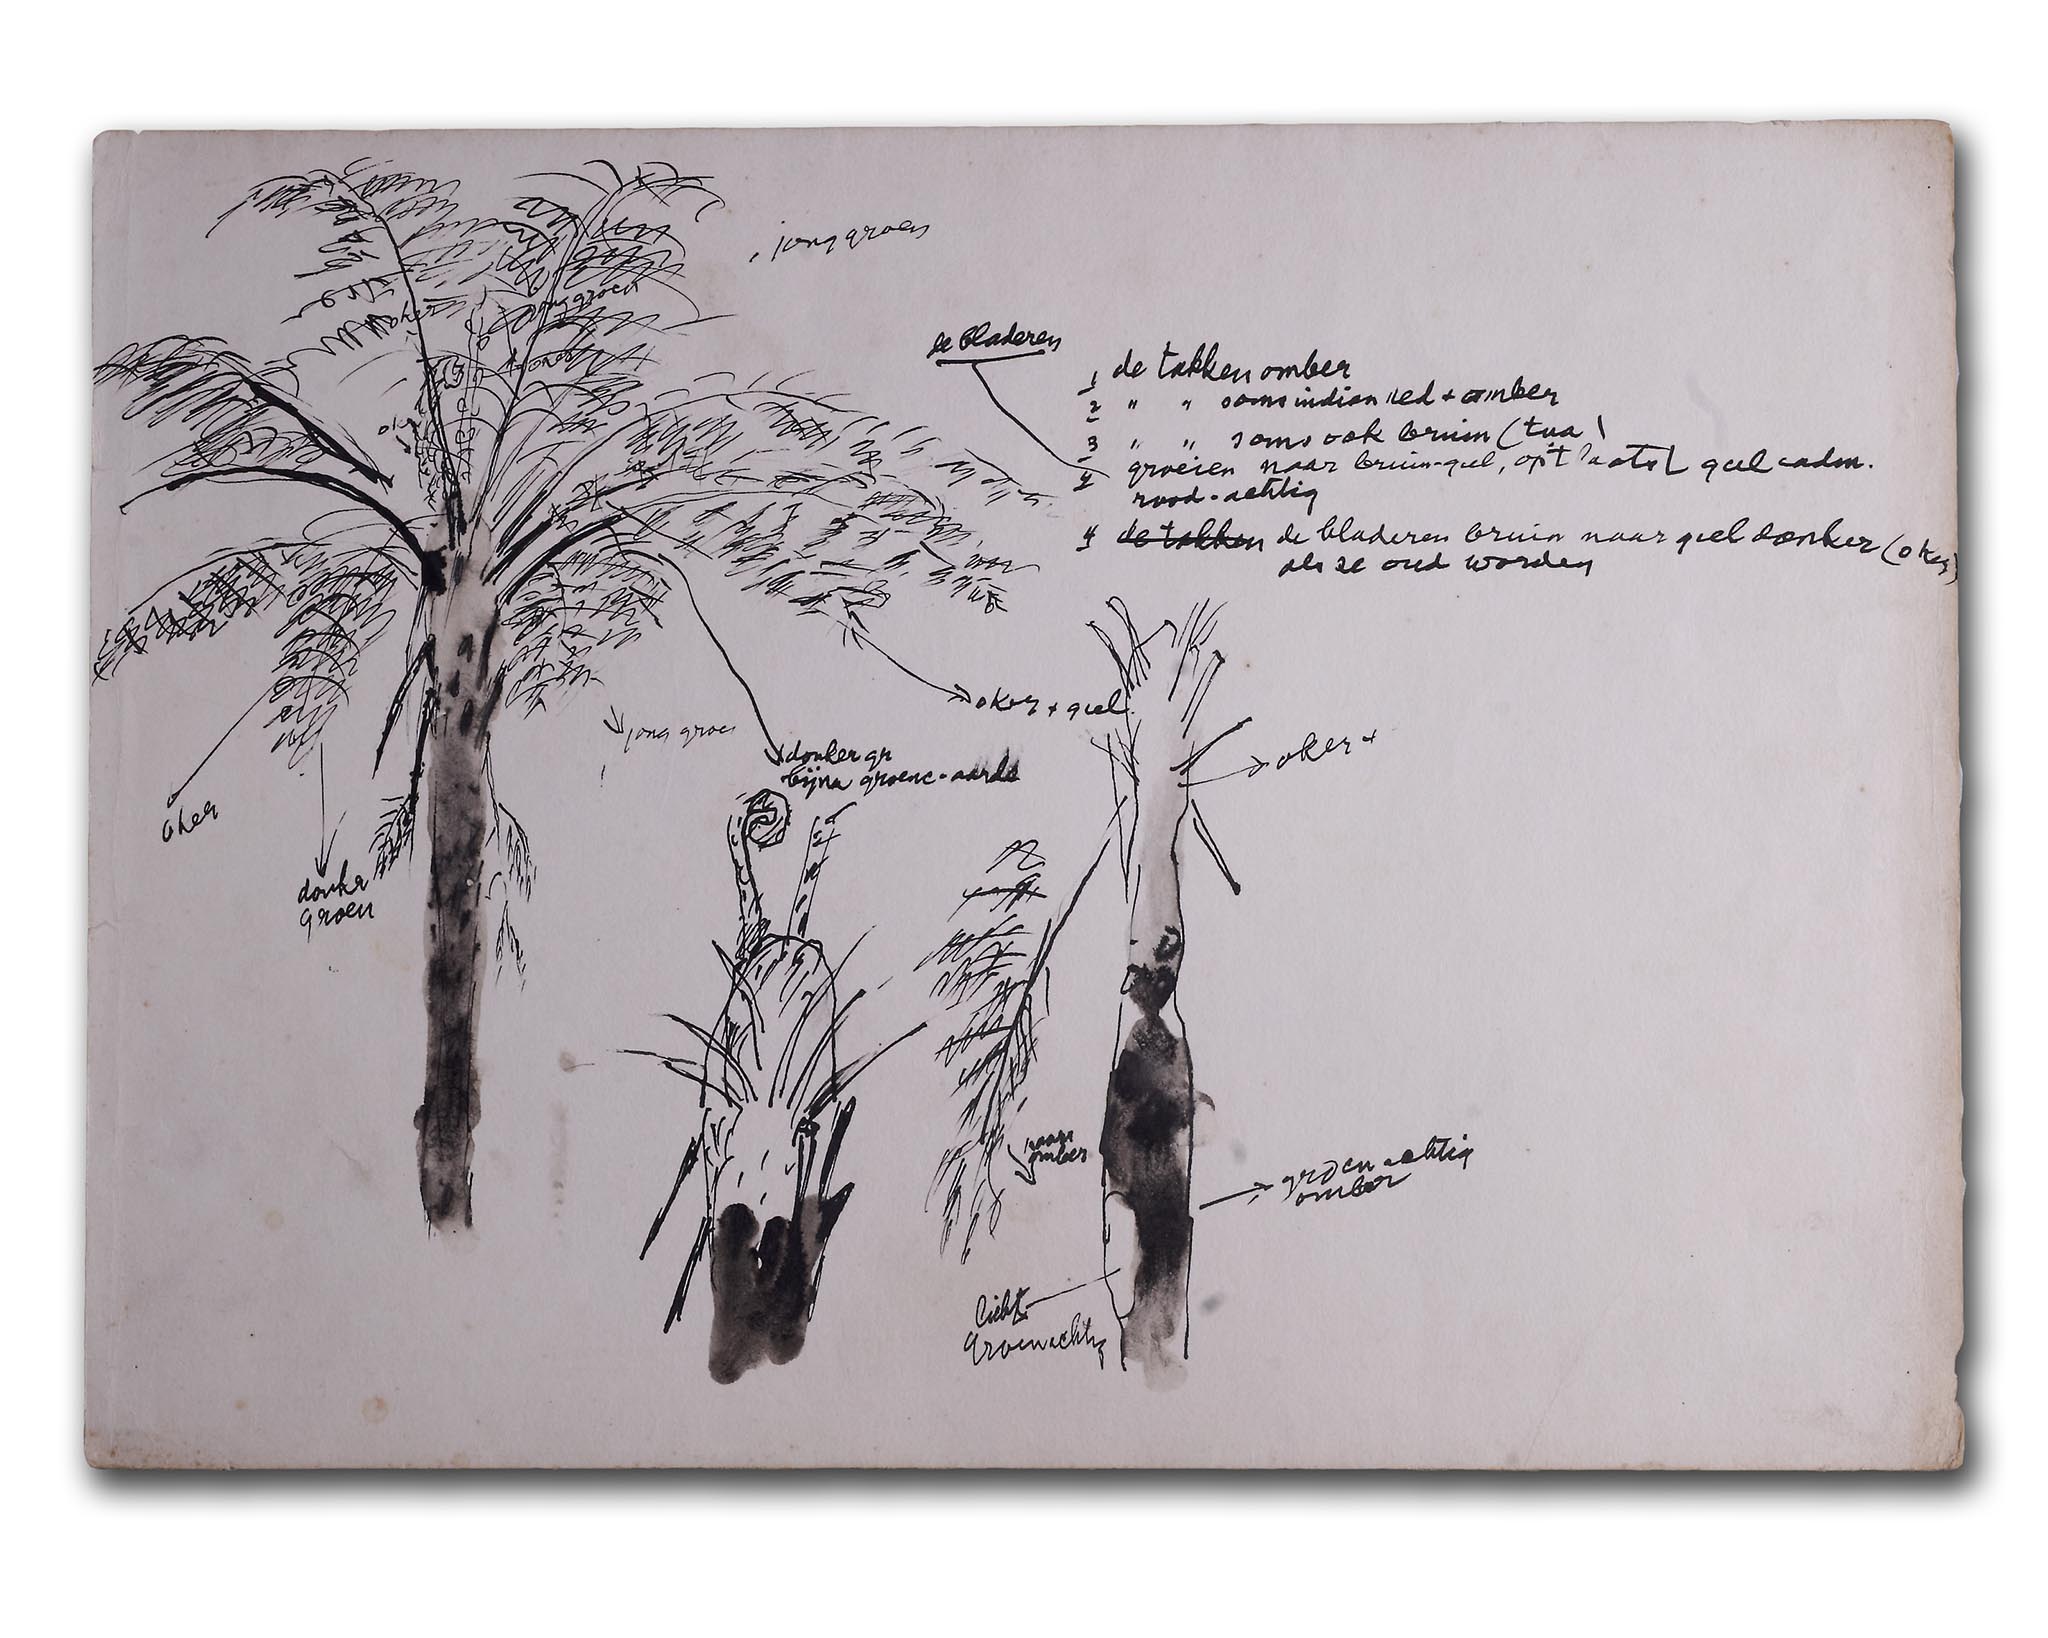 jong groen
oker
jong groen
de bladeren
1 de takken omber
2 " " soms indian red + omber
3 " " soms ook bruin (tua)
4 groeien naar bruin-geel, op't laatst geel cadm.
rood-achtig
4 de takken de bladeren bruin naar geel donker (oker)
als ze oud worden
oker + geel
jong groen
donker gr
bijna groene-aarde
oker +
oker
donker
groen
naar
omber
groenachtig
omber
licht
groenachtig